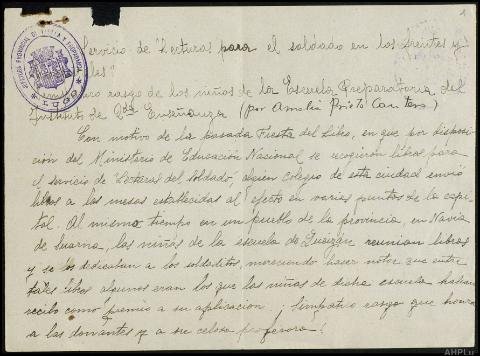 1
Servicio de "Lecturas para el soldado en los frentes y
rasgo de los niños de la Escuela Preparatoria del
Instituto de 2ª Enseñanza (por Amelia Prieto Cantero)
Con motivo de la pasada Fiesta del Libro, en que por disposi-
ción del Ministerio de Educación Nacional se recogieron libros para
el servicio de Lecturas del soldado, algún colegio de esta ciudad envió
libros a las mesas establecidas al efecto en varios puntos de la capi-
tal. Al mismo tiempo en un pueblo de la provincia, en Navia
de Suarna, los niños de la escuela de Queizán reunían libros
y se los dedicaban a los soldaditos, mereciendo hacer notar que entre
tales libros algunos eran los que los niños de dicha escuela habían
recibido como premio a su aplicación. ¡Simpático rasgo que honra
a los donantes y a su celosa profesora!
LUGO
AHPLu